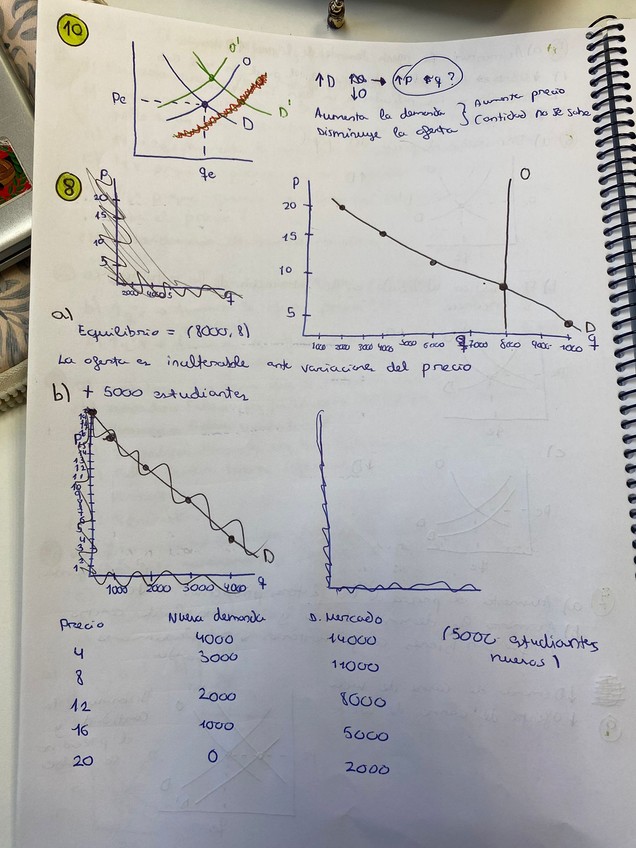 10
O'
O
Pe
D
D'
qe
↑D ↓O → ↑p ↑q?
Aumenta la demanda } Aumenta precio
Disminuye la oferta } Cantidad no se sabe
8
P
20
15
10
5
2000 4000
q
P
O
20
15
10
5
1000 2000 3000 4000 5000 6000 7000 8000
D
q
a)
Equilibrio = (8000, 8)
La oferta es inalterable ante variaciones del precio
b) + 5000 estudiantes
D
1000 2000 3000 4000 q
Precio Nueva demanda D. Mercado
4 4000 14000 (5000 estudiantes
8 3000 11000 nuevos)
12 2000 8000
16 1000 5000
20 0 2000